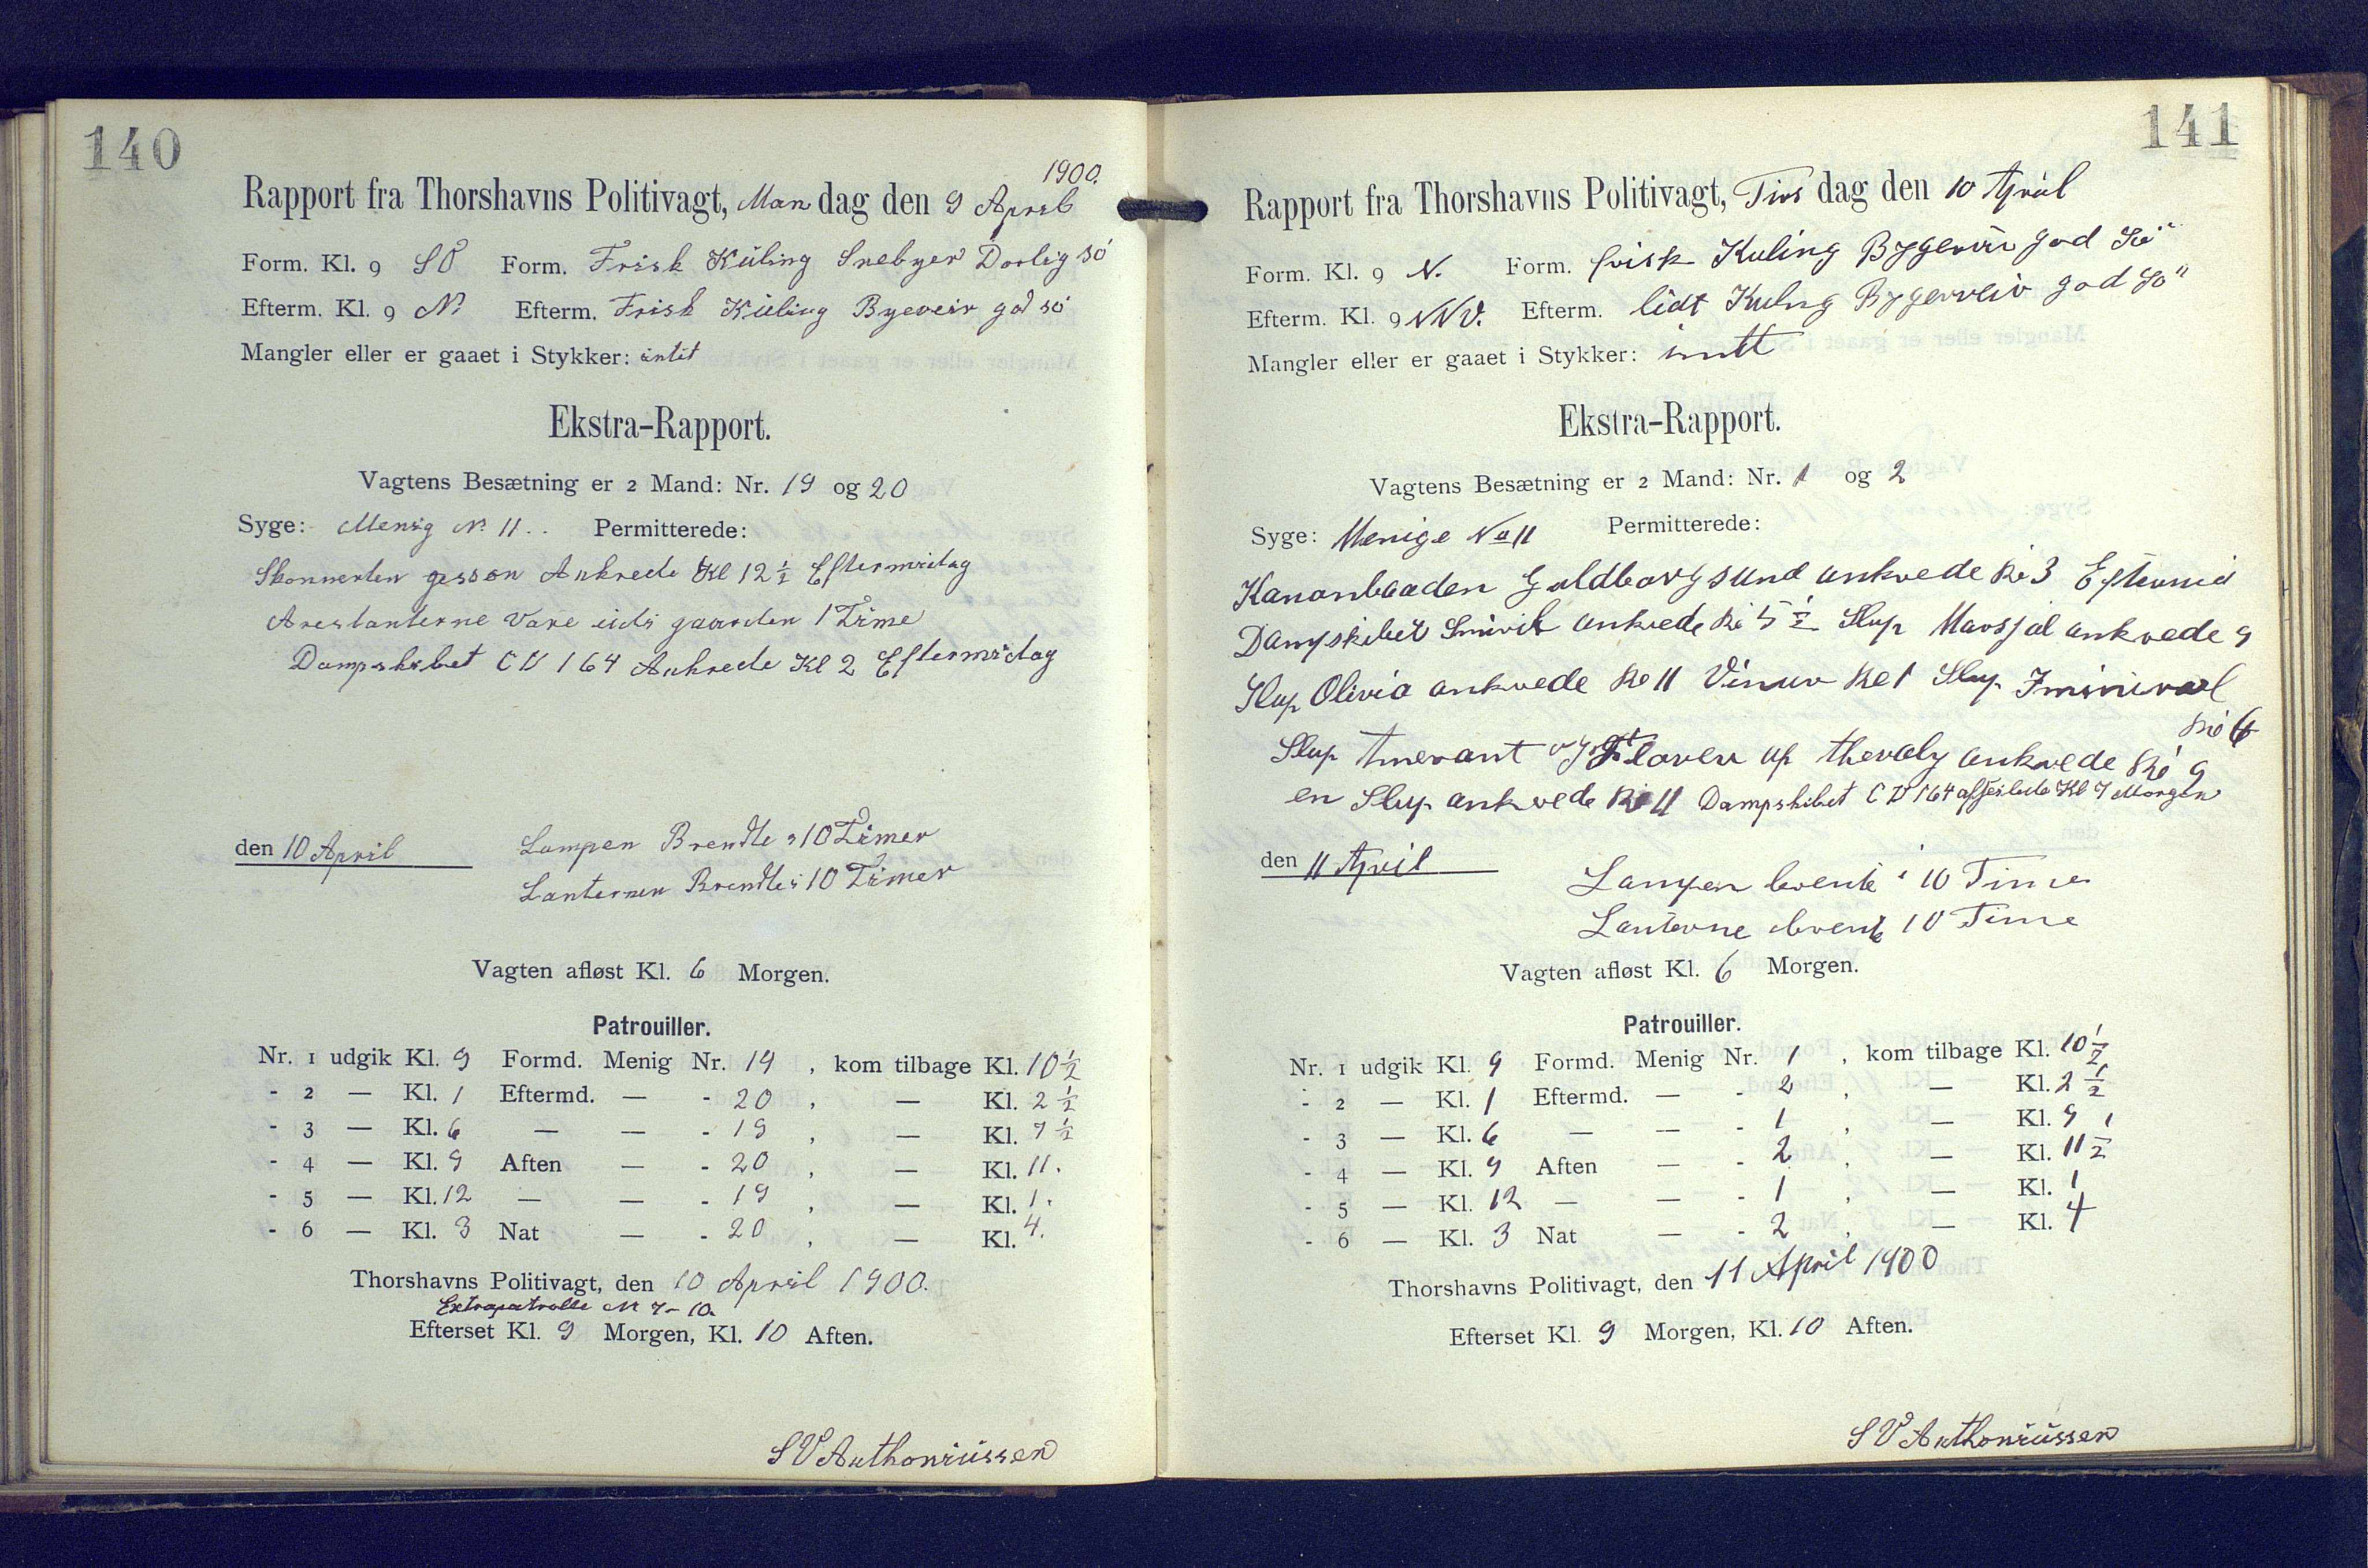 140
1900.
Rapport fra Thorshavns Politivagt, Man dag den 9 April
Form. Kl. 9 SO Form. Frisk Kuling Snebyer Dorlig so
Efterm. Kl. 9 N. Efterm. Frisk Kuling Byeveir god so
Mangler eller er gaaet i Stykker: intit
Ekstra-Rapport.
Vagtens Besætning er 2 Mand: Nr. 19 og 20
Syge: Menig N. 11.. Permitterede:
Skonnerten Ankrede Kl 12 ½ Eftermidag
Arestanterne vare udi gaarden 1 Time
Dampskibet C D 164 Ankrede Kl 2 Eftermidag
den 10 April Lampen Brendte 10 Timer
Lanternen Brendte i 10 Timer
Vagten afløst Kl. 6 Morgen.
Patrouiller.
Nr. 1 udgik Kl. 9 Formd. Menig Nr. 19, kom tilbage Kl. 10 ½
- 2 — Kl. 1 Eftermd. — - 20, — Kl. 2 ½
- 3 — Kl. 6 — — - 19, — Kl. 7 ½
- 4 — Kl. 9 Aften — - 20, — Kl. 11.
- 5 — Kl. 12 — — - 19, — Kl. 1.
- 6 — Kl. 3 Nat — - 20, — Kl. 4.
Thorshavns Politivagt, den 10 April 1900.
Extrapatrolle N 7-10.
Efterset Kl. 9 Morgen, Kl. 10 Aften.
SV Anthoniussen
141
Rapport fra Thorshavns Politivagt, Tirs dag den 10 April
Form. Kl. 9 N. Form. frisk Kuling Bygeveir god Sö
Efterm. Kl. 9 NNV. Efterm. lidt Kulng Bygerveir god Sö
Mangler eller er gaaet i Stykker: intt
Ekstra-Rapport.
Vagtens Besætning er 2 Mand: Nr. 1 og 2
Syge: Menige No 11 Permitterede:
Kanonbaaden Guldborgsund ankrede Kl 3 Eftermid
Dampskibet Smiril ankrede Kl 5 ½ Slup ankrede 9
Slup Olivia ankrede Kl 11 Kl 1 Slup
Kl 6
Slup og af ankrede Kl 9
en Slup ankrede Kl 11 Dampskibet C D 164 afseilede Kl 7 Morgen
den 11 April Lampen brente i 10 Time
Lanterne brente 10 Time
Vagten afløst Kl. 6 Morgen.
Patrouiller.
Nr. 1 udgik Kl. 9 Formd. Menig Nr. 1, kom tilbage Kl. 10 ½
- 2 — Kl. 1 Eftermd. — - 2, — Kl. 2 ½
- 3 — Kl. 6 — — - 1, — Kl. 9
- 4 — Kl. 9 Aften — - 2, — Kl. 11 ½
- 5 — Kl. 12 — — - 1, — Kl. 1
- 6 — Kl. 3 Nat — - 2, — Kl. 4
Thorshavns Politivagt, den 11 April 1900
Efterset Kl. 9 Morgen, Kl. 10 Aften.
SV Anthoniussen